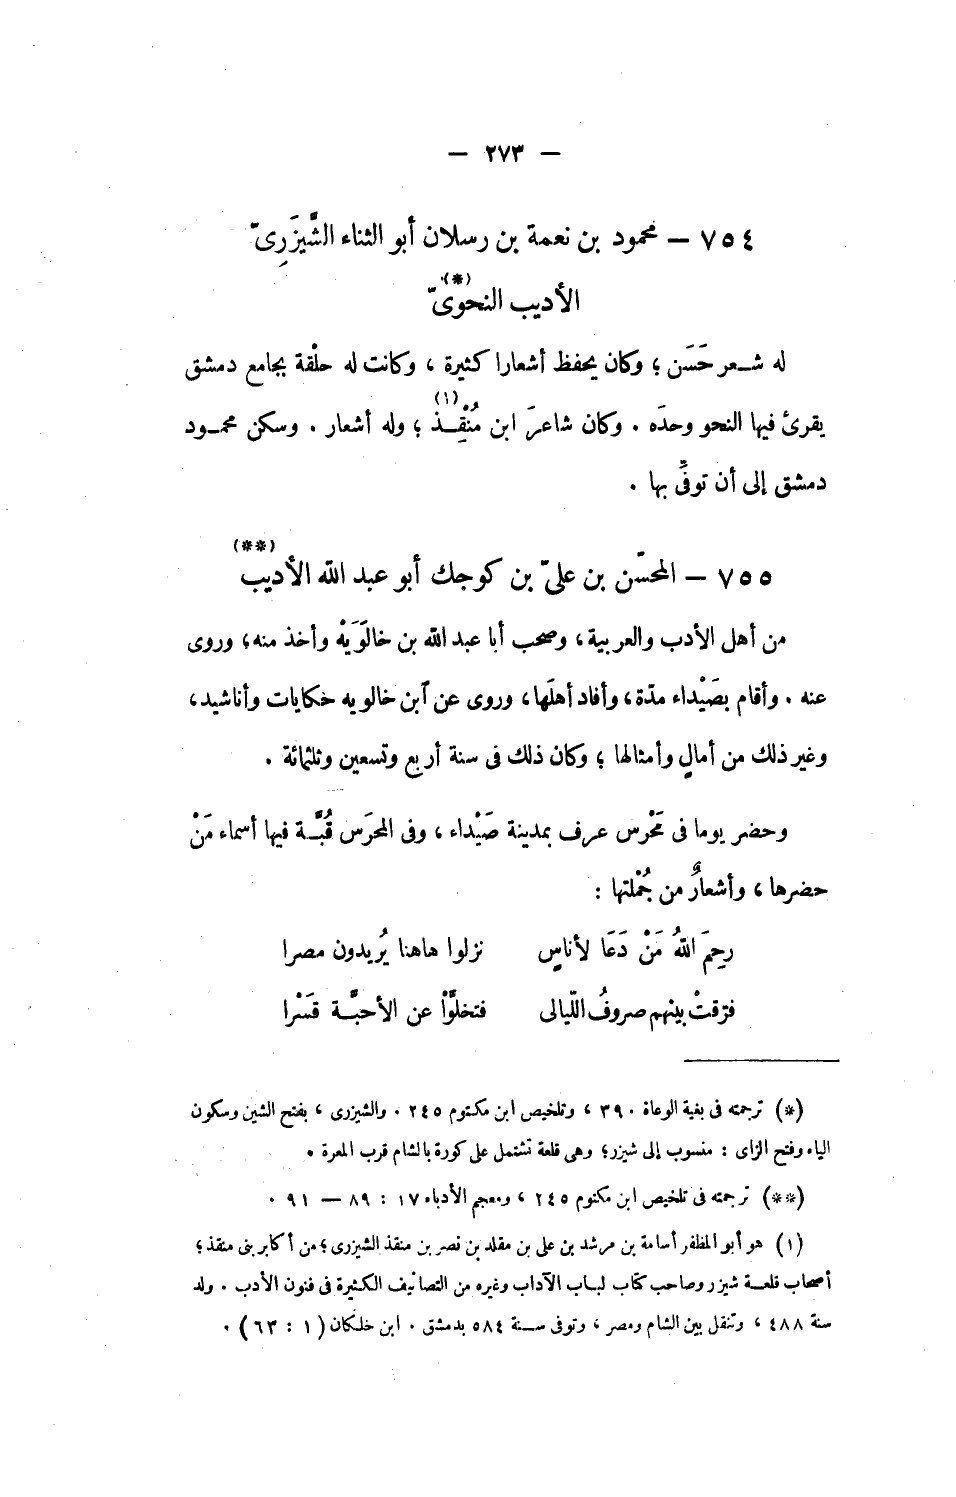 — ٢٧٣ —
٧٥٤ — محمود بن نعمة بن رسلان أبو الثناء الشَّيزَرِىّ
الأديب النحوىّ (*)
له شـعر حَسَن ؛ وكان يحفظ أشعارا كثيرة ، وكانت له حلْقة بجامع دمشق
يقرئ فيها النحو وحدَه . وكان شاعرَ ابن مُنْقِـذ (١) ؛ وله أشعار . وسكن محمـود
دمشق إلى أن توفِّىَ بها .
٧٥٥ — المحسّن بن علىّ بن كوجك أبو عبد الله الأديب (**)
من أهل الأدب والعربية ، وصحب أبا عبد الله بن خالَوَيْه وأخذ منه؛ وروى
عنه . وأقام بصَيْداء مدّة ، وأفاد أهلَها ، وروى عن ٱبن خالويه حكايات وأناشيد ،
وغير ذلك من أمالٍ وأمثالها ؛ وكان ذلك فى سنة أربع وتسعين وثلثمائة .
وحضر يوما فى مَحْرس عرف بمدينة صَيْداء ، وفى المحرَس قُبَّـة فيها أسماء مَنْ
حضرها ، وأشعارٌ من جُمْلتها :
رحِمَ اللهُ مَنْ دَعَا لأناسٍ نزلوا هاهنا يُريدون مصرا
فرّقتْ بينهم صروفُ اللّيالى فتخلَّوْا عن الأحبَّـة قَسْرا
(*) ترجمته فى بغية الوعاة ٣٩٠ ، وتلخيص ابن مكتوم ٢٤٥ . والشيزرى ، بفتح الشين وسكون
الياء وفتح الزاى : منسوب إلى شيزر؛ وهى قلعة تشتمل على كورة بالشام قرب المعرة .
(**) ترجمته فى تلخيص ابن مكتوم ٢٤٥ ، ومعجم الأدباء ١٧ : ٨٩ — ٩١ .
(١) هو أبو المظفر أسامة بن مرشد بن على بن مقلد بن نصر بن منقذ الشيزرى ؛ من أكابر بنى منقذ ؛
أصحاب قلعـة شيزر وصاحب كتاب لبـاب الآداب وغيره من التصانيف الكثيرة فى فنون الأدب . ولد
سنة ٤٨٨ ، وتنقل بين الشام ومصر ، وتوفى سـنة ٥٨٤ بدمشق . ابن خلكان ( ١ : ٦٣ ) .